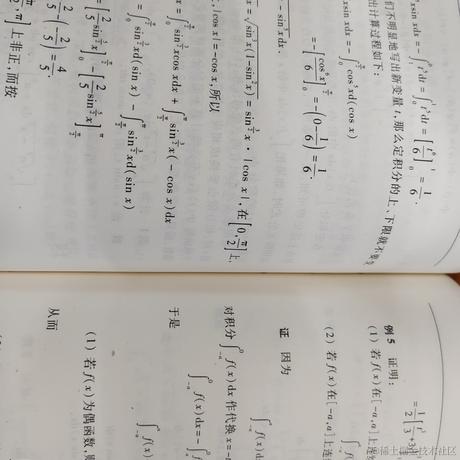 xsin xdx = -∫₁⁰ t⁵dt = ∫₀¹ t⁵dt = [t⁶/6]₀¹ = 1/6.
们不明显地写出新变量 t，那么定积分的上、下限就不
出计算过程如下：
xsin xdx = -∫₀^(π/2) cos⁵xd(cos x)
= -[cos⁶x/6]₀^(π/2) = -(0-1/6) = 1/6.
-sin⁵xdx.
x = √(sin³x(1-sin²x)) = sin^(3/2)x·|cos x|，在[0,π/2]上，
|cos x| = -cos x，所以
x = ∫₀^(π/2) sin^(3/2)xcos xdx + ∫_(π/2)^π sin^(3/2)x(-cos x)dx
= ∫₀^(π/2) sin^(3/2)xd(sin x) - ∫_(π/2)^π sin^(3/2)xd(sin x)
= [2/5 sin^(5/2)x]₀^(π/2) - [2/5 sin^(5/2)x]_(π/2)^π
2/5 - (-2/5) = 4/5.
,π]上非正，而按
= 1/2[t³/3+3
例 5 证明：
（1）若 f(x)在[-a,a]上
（2）若 f(x)在[-a,a]上连
证 因为
∫₋ₐ f(x)d
对积分∫₋ₐ⁰ f(x)dx 作代换 x=-
于是
∫₋ₐ⁰ f(x)dx = -∫
从而
∫₋ₐ f(x)
（1）若 f(x)为偶函数，
@稀土掘金技术社区